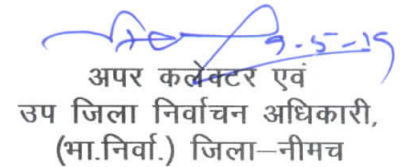 9-5-19
अपर कलेक्टर एवं
उप जिला निर्वाचन अधिकारी,
(भा.निर्वा.) जिला–नीमच